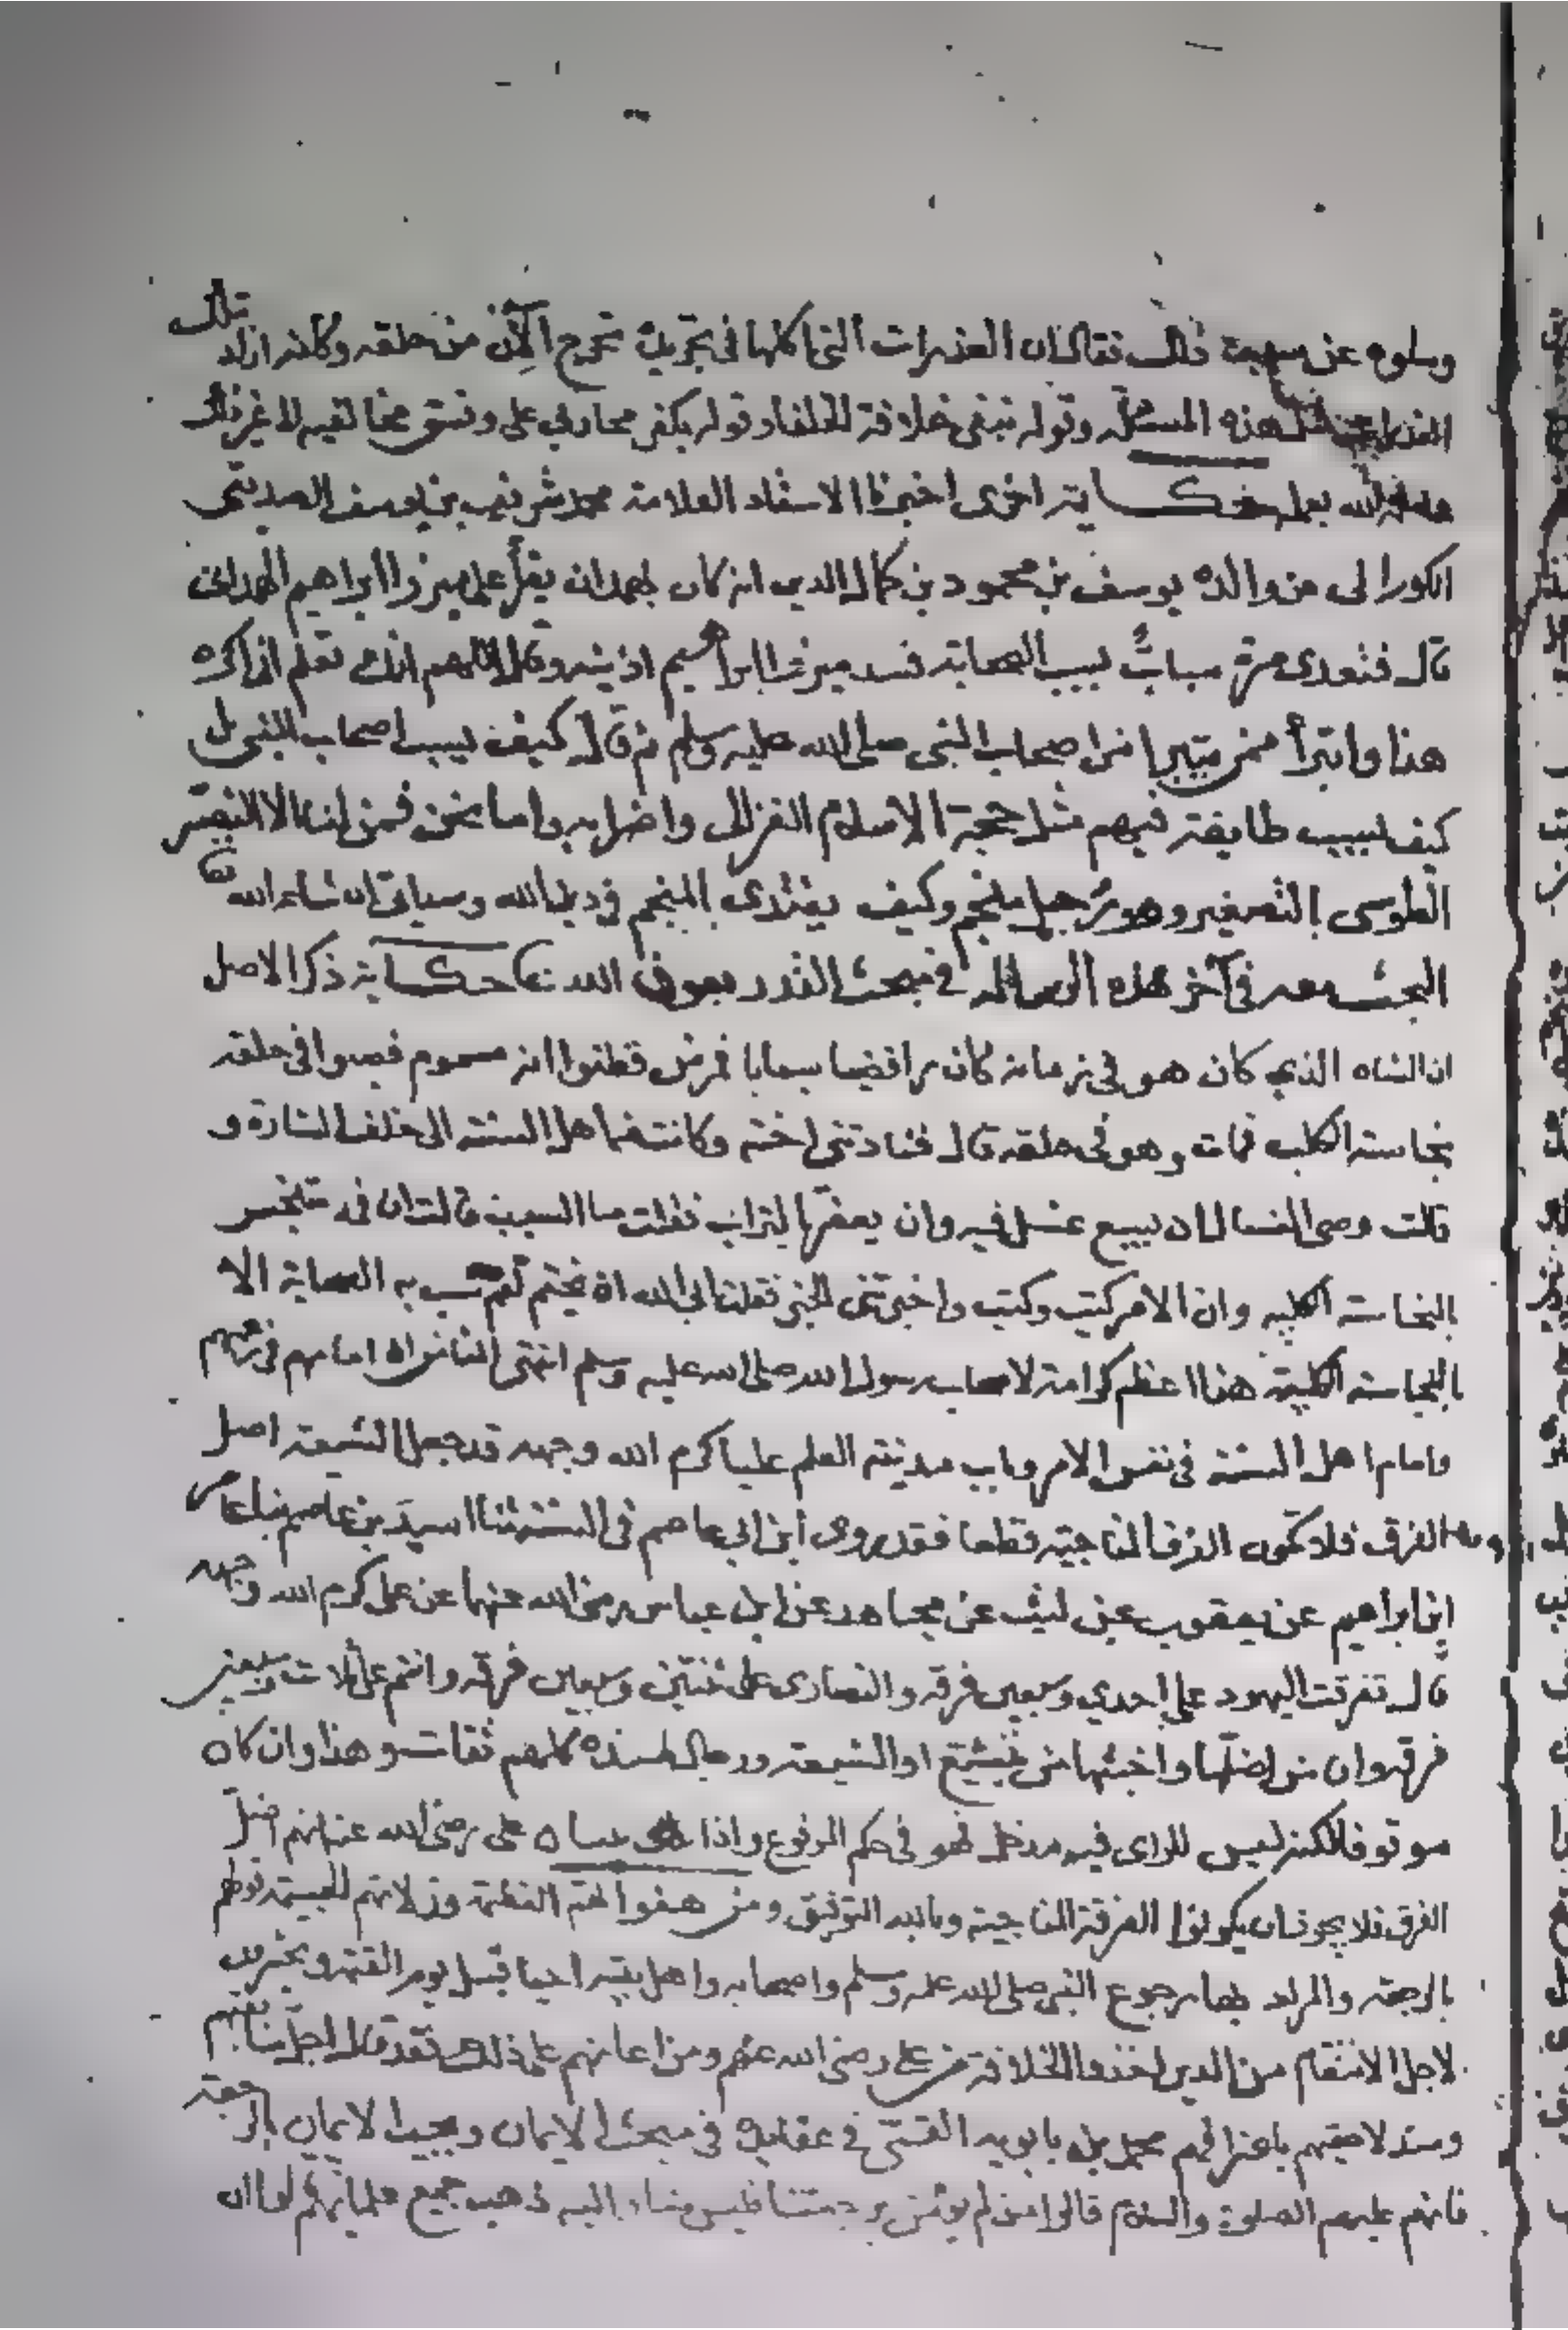 وسلوه عن سبب ذلك فقال ان العذرات التي اكلها في تجريك تخرج الآن من حلقه وكانه اراد تلك
هذه المسئلة وقوله بنفي خلافة الخلفا وقوله بكفر محاربي علي وفسق مخالفيه لا غير ذلك
حكاية اخرى اخبرنا الاستاد العلامة محمد شريف بن يوسف الصديقي
الكوراني عن والده يوسف بن محمود بن كمال الدين انه كان بهمدان يقرأ على ميرزا ابراهيم الهمداني
قال فتعدى مرة سباب يسب الصحابة فسد ميرزا ابراهيم اذنيه وقال اللهم انك تعلم اني اكره
هذا وابترأ ممن يتبرا من اصحاب النبي صلى الله عليه وسلم ثم قال كيف يسب اصحاب النبي بل
كيف يسب طايفة فيهم مثل حجة الاسلام الغزالي واضرابه واما نحن فمن لنا الا النصير
الطوسي بالتصغير وهو رجل منجم وكيف يقتدى بالمنجم في دين الله وسياتي ان شاء الله تعا
البحث معه في آخر هذه الرسالة في مبحث النذر بعون الله تعا حكاية ذكر الاصل
ان الشاه الذي كان هو في زمانه كان رافضيا سبابا فمرض فظنوا انه مسموم فصبوا في حلقه
نجاسة الكلب فمات وهو في حلقه قال فنادتني اخته وكانت من اهل السنة الى خلف الستارة و
قالت وصى الغسال ان يسبع غسل فيه وان يعفرها بتراب فقلت ما السبب قالت ان فيه تنجس
بالنجاسة الكلبية وان الامر كيت وكيت واخبرتني الخبر فقلت ابى الله ان يختم لفم سب به الصحابة الا
بالنجاسة الكلبية هذا اعظم كرامة لاصحاب رسول الله صلى الله عليه وسلم انتهى الثاني ان امامهم في زعمهم
وامام اهل السنة في نفس الامر وباب مدينة العلم عليا كرم الله وجهه قد جعل الشيعة اضل
الفرق فلا تكون الفرقة الناجية قطعا فقد روى ابن ابي عاصم في السنة ثنا اسيد بن عاصم ثنا عامر
ابن ابراهيم عن يعقوب عن ليث عن مجاهد عن ابن عباس رضي الله عنهما عن علي كرم الله وجهه
قال تفرقت اليهود على احدي وسبعين فرقة والنصارى على ثنتين وسبعين فرقة وانتم على ثلاث وسبعين
فرقة وان من اضلها واخبثها من يتشيع او الشيعة ورجال سنده كلهم ثقات وهذا وان كان
موقوفا لكنه ليس للراى فيه مدخل فهو في حكم المرفوع واذا علي رضي الله عنه انهم اضل
الفرق فلا يجوز ان يكونوا الفرقة الناجية وبالله التوفيق ومن هفواتهم الفظيعة وزلاتهم قولهم
بالرجعة والمراد بها رجوع النبي صلى الله عليه وسلم واصحابه واهل بيته احيا قبل يوم القيمة
لاجل الانتقام من الدين اخذوا الخلافة من علي رضي الله عنهم ومن اعانهم على ذلك فقد قال
محمد بن بابويه القمي في عقايده في مبحث الايمان ويجب الايمان بالرجعة
فانهم عليهم الصلوة والسلام قالوا من لم يؤمن برجعتنا فليس منا واليه ذهب جميع علمائهم